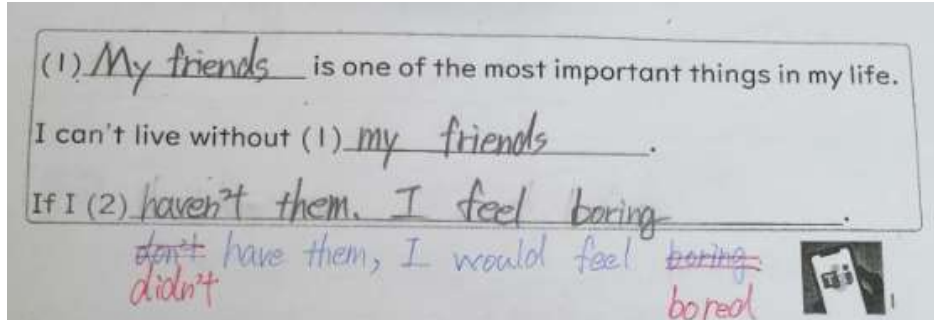 (1) My friends is one of the most important things in my life.
I can't live without (1) my friends.
If I (2) haven't them. I feel boring.
don't have them, I would feel boring.
didn't bored